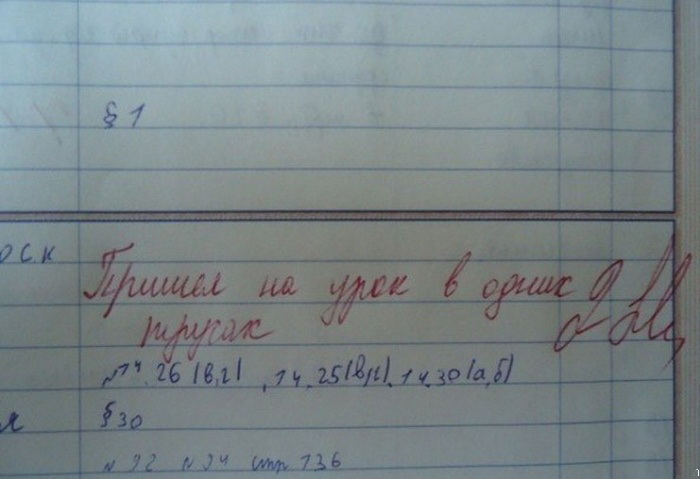 § 1
Пришел на урок в одних
трусах
№14.26 (в,г), 14.25(в,г), 14.30(а,б)
§30
№ 92 № 94 стр 136